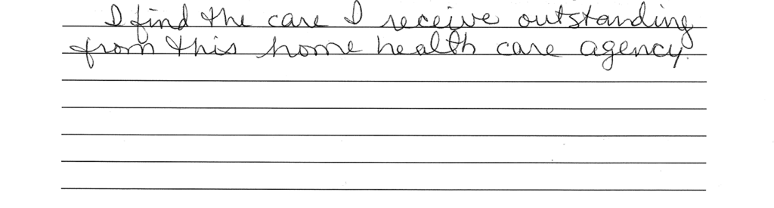 I find the care I receive outstanding
from this home health care agency.